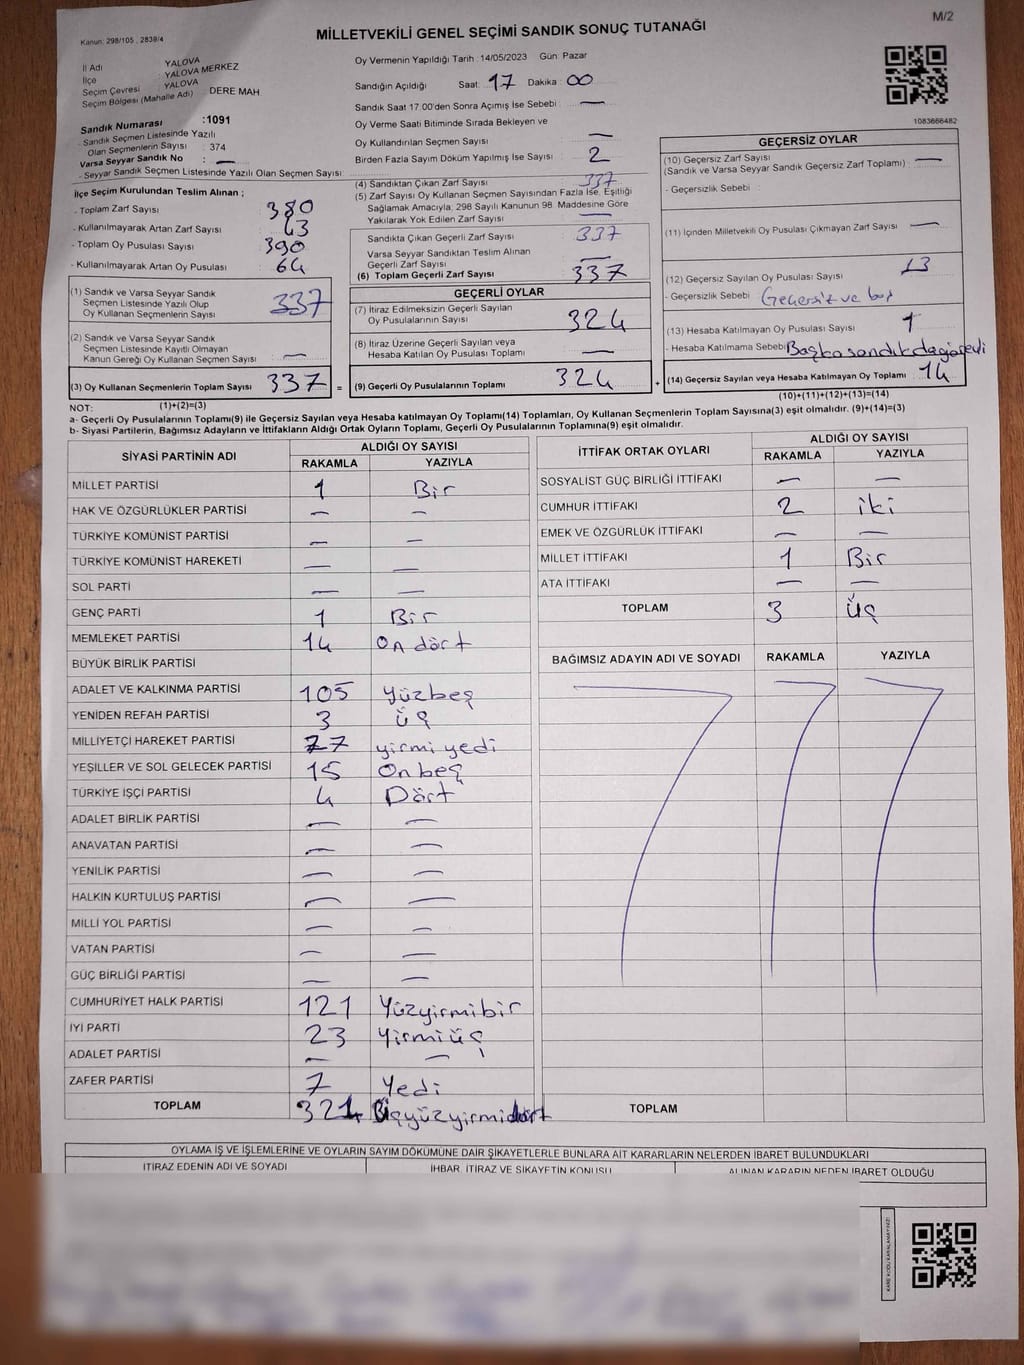 M/2
Kanun: 298/105 , 2839/4
MİLLETVEKİLİ GENEL SEÇİMİ SANDIK SONUÇ TUTANAĞI
İl Adı YALOVA
İlçe YALOVA MERKEZ
Seçim Çevresi YALOVA
Seçim Bölgesi (Mahalle Adı) : DERE MAH
Oy Vermenin Yapıldığı Tarih : 14/05/2023 Gün: Pazar
Sandığın Açıldığı Saat: 17 Dakika : 00
Sandık Saat 17.00'den Sonra Açımış İse Sebebi : —
Oy Verme Saati Bitiminde Sırada Bekleyen ve
Oy Kullandırılan Seçmen Sayısı : —
Birden Fazla Sayım Döküm Yapılmış İse Sayısı : 2
1083666482
Sandık Numarası :1091
- Sandık Seçmen Listesinde Yazılı
Olan Seçmenlerin Sayısı : 374
Varsa Seyyar Sandık No : —
- Seyyar Sandık Seçmen Listesinde Yazılı Olan Seçmen Sayısı:
İlçe Seçim Kurulundan Teslim Alınan ;
- Toplam Zarf Sayısı : 380
- Kullanılmayarak Artan Zarf Sayısı : 43
- Toplam Oy Pusulası Sayısı : 390
- Kullanılmayarak Artan Oy Pusulası : 64
(1) Sandık ve Varsa Seyyar Sandık
Seçmen Listesinde Yazılı Olup
Oy Kullanan Seçmenlerin Sayısı : 337
(2) Sandık ve Varsa Seyyar Sandık
Seçmen Listesinde Kayıtlı Olmayan
Kanun Gereği Oy Kullanan Seçmen Sayısı : —
(3) Oy Kullanan Seçmenlerin Toplam Sayısı : 337 =
(1)+(2)=(3)
(4) Sandıktan Çıkan Zarf Sayısı : 337
(5) Zarf Sayısı Oy Kullanan Seçmen Sayısından Fazla İse, Eşitliği
Sağlamak Amacıyla; 298 Sayılı Kanunun 98. Maddesine Göre
Yakılarak Yok Edilen Zarf Sayısı : —
Sandıkta Çıkan Geçerli Zarf Sayısı : 337
Varsa Seyyar Sandıktan Teslim Alınan
Geçerli Zarf Sayısı : —
(6) Toplam Geçerli Zarf Sayısı : 337
GEÇERLİ OYLAR
(7) İtiraz Edilmeksizin Geçerli Sayılan
Oy Pusulalarının Sayısı : 324
(8) İtiraz Üzerine Geçerli Sayılan veya
Hesaba Katılan Oy Pusulası Toplamı : —
(9) Geçerli Oy Pusulalarının Toplamı : 324 +
GEÇERSİZ OYLAR
(10) Geçersiz Zarf Sayısı
(Sandık ve Varsa Seyyar Sandık Geçersiz Zarf Toplamı) : —
- Geçersizlik Sebebi :
(11) İçinden Milletvekili Oy Pusulası Çıkmayan Zarf Sayısı : —
(12) Geçersiz Sayılan Oy Pusulası Sayısı : 13
- Geçersizlik Sebebi : Geçersiz ve boş
(13) Hesaba Katılmayan Oy Pusulası Sayısı : 1
- Hesaba Katılmama Sebebi : Başka sandıkda görevli
(14) Geçersiz Sayılan veya Hesaba Katılmayan Oy Toplamı : 14
(10)+(11)+(12)+(13)=(14)
NOT:
a- Geçerli Oy Pusulaların Toplamı(9) ile Geçersiz Sayılan veya Hesaba katılmayan Oy Toplamı(14) Toplamları, Oy Kullanan Seçmenlerin Toplam Sayısına(3) eşit olmalıdır. (9)+(14)=(3)
b- Siyasi Partilerin, Bağımsız Adayların ve İttifakların Aldığı Ortak Oyların Toplamı, Geçerli Oy Pusulalarının Toplamına(9) eşit olmalıdır.
SİYASİ PARTİNİN ADI ALDIĞI OY SAYISI
RAKAMLA YAZIYLA
MİLLET PARTİSİ 1 Bir
HAK VE ÖZGÜRLÜKLER PARTİSİ — —
TÜRKİYE KOMÜNİST PARTİSİ — —
TÜRKİYE KOMÜNİST HAREKETİ — —
SOL PARTİ — —
GENÇ PARTİ 1 Bir
MEMLEKET PARTİSİ 14 On dört
BÜYÜK BİRLİK PARTİSİ
ADALET VE KALKINMA PARTİSİ 105 Yüzbeş
YENİDEN REFAH PARTİSİ 3 üç
MİLLİYETÇİ HAREKET PARTİSİ 27 yirmi yedi
YEŞİLLER VE SOL GELECEK PARTİSİ 15 Onbeş
TÜRKİYE İŞÇİ PARTİSİ 4 Dört
ADALET BİRLİK PARTİSİ — —
ANAVATAN PARTİSİ — —
YENİLİK PARTİSİ — —
HALKIN KURTULUŞ PARTİSİ — —
MİLLİ YOL PARTİSİ — —
VATAN PARTİSİ — —
GÜÇ BİRLİĞİ PARTİSİ — —
CUMHURİYET HALK PARTİSİ 121 Yüzyirmibir
İYİ PARTİ 23 Yirmiüç
ADALET PARTİSİ — —
ZAFER PARTİSİ 7 Yedi
TOPLAM 321 üçyüzyirmidört
İTTİFAK ORTAK OYLARI ALDIĞI OY SAYISI
RAKAMLA YAZIYLA
SOSYALİST GÜÇ BİRLİĞİ İTTİFAKI — —
CUMHUR İTTİFAKI 2 iki
EMEK VE ÖZGÜRLÜK İTTİFAKI — —
MİLLET İTTİFAKI 1 Bir
ATA İTTİFAKI — —
TOPLAM 3 Üç
BAĞIMSIZ ADAYIN ADI VE SOYADI RAKAMLA YAZIYLA
TOPLAM
OYLAMA İŞ VE İŞLEMLERİNE VE OYLARIN SAYIM DÖKÜMÜNE DAİR ŞİKAYETLERLE BUNLARA AİT KARARLARIN NELERDEN İBARET BULUNDUKLARI
İTİRAZ EDENİN ADI VE SOYADI İHBAR, İTİRAZ VE ŞİKAYETİN KONUSU ALINAN KARARIN NEDEN İBARET OLDUĞU
KARE KODU KARALAMAYINIZ!